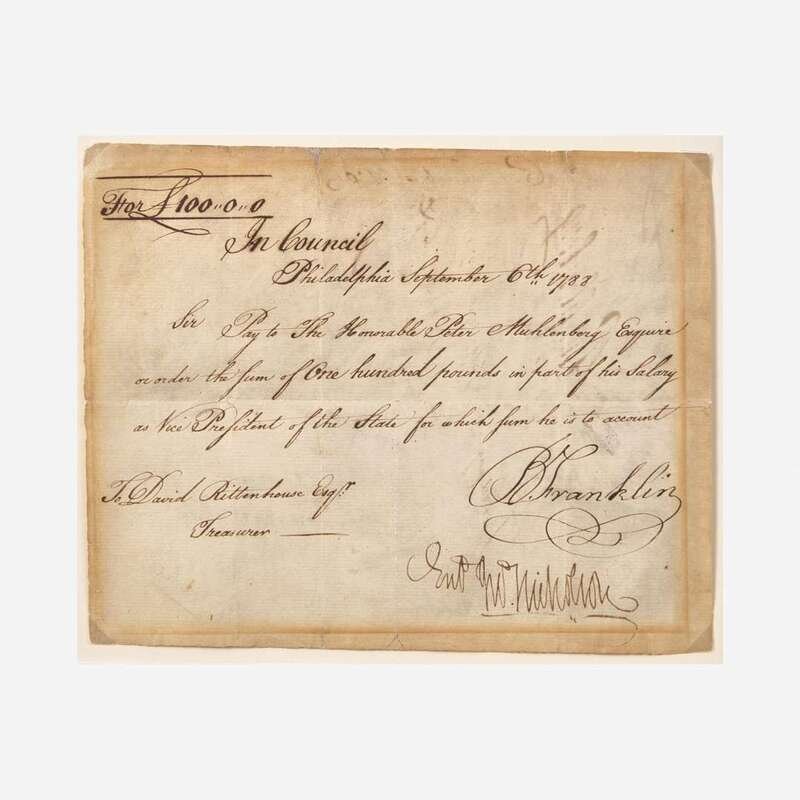 For £100..0..0
In Council
Philadelphia September 6th.. 1788
Sir Pay to The Honorable Peter Muhlenberg Esquire
or order the sum of One hundred pounds in part of his Salary
as Vice President of the State for which sum he is to account
B Franklin
To David Rittenhouse Esqr.
Treasurer
Entd Jno. Nicholson